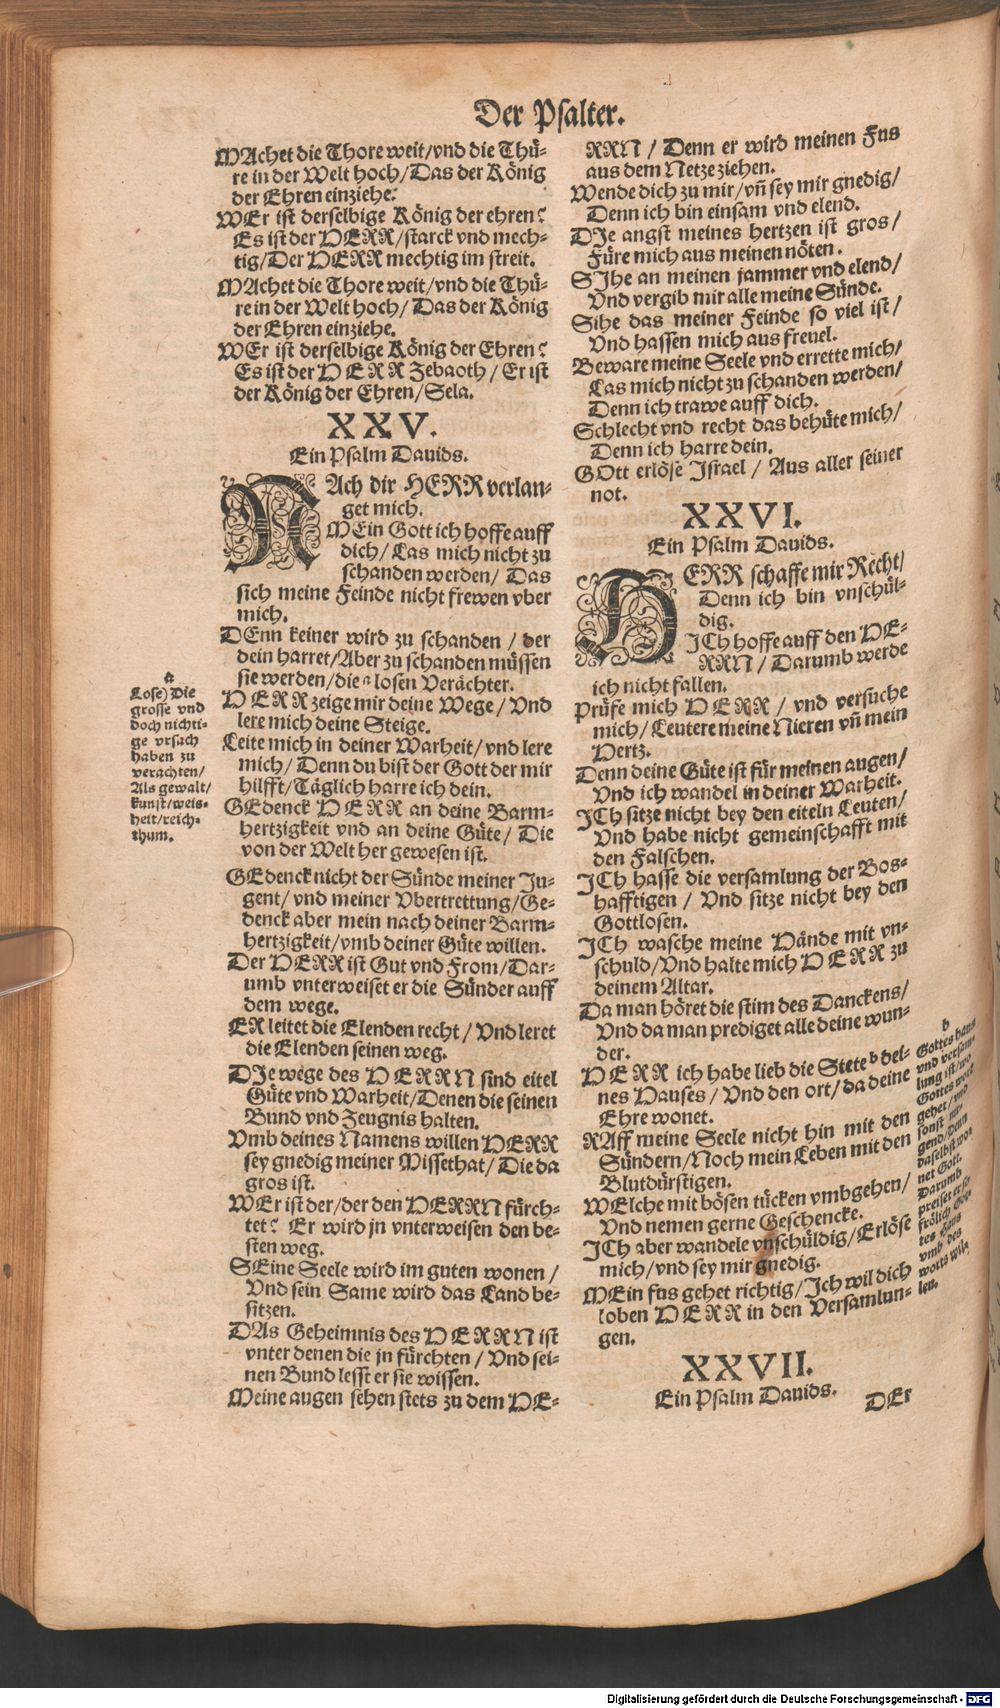 Der Psalter.
MAchet die Thore weit/vnd die Thü-
re in der Welt hoch/Das der König
der Ehren einziehe.
WEr ist derselbige König der ehren?
Es ist der HERR/starck vnd mech-
tig/Der HERR mechtig im streit.
MAchet die Thore weit/vnd die Thü-
re in der Welt hoch/Das der König
der Ehren einziehe.
WEr ist derselbige König der Ehren?
Es ist der HERR Zebaoth/Er ist
der König der Ehren/Sela.
XXV.
Ein Psalm Dauids.
NAch dir HERR verlan-
get mich.
MEin Gott ich hoffe auff
dich/Las mich nicht zu
schanden werden/Das
sich meine Feinde nicht frewen vber
mich.
DEnn keiner wird zu schanden/der
dein harret/Aber zu schanden müssen
sie werden/die a losen Verächter.
HERR zeige mir deine Wege/Vnd
lere mich deine Steige.
Leite mich in deiner Warheit/vnd lere
mich/Denn du bist der Gott der mir
hilfft/Täglich harre ich dein.
GEdenck HERR an deine Barm-
hertzigkeit vnd an deine Güte/Die
von der Welt her gewesen ist.
GEdenck nicht der Sünde meiner Ju-
gent/vnd meiner Vbertrettung/Ge-
denck aber mein nach deiner Barm-
hertzigkeit/vmb deiner Güte willen.
Der HERR ist Gut vnd From/Dar-
umb vnterweiset er die Sünder auff
dem wege.
ER leitet die Elenden recht/Vnd leret
die Elenden seinen weg.
DJe wege des HERRN sind eitel
Güte vnd Warheit/Denen die seinen
Bund vnd Zeugnis halten.
Vmb deines Namens willen HERR
sey gnedig meiner Missethat/Die da
gros ist.
WEr ist der/der den HERRN fürch-
tet? Er wird jn vnterweisen den be-
sten weg.
SEine Seele wird im guten wonen/
Vnd sein Same wird das Land be-
sitzen.
DAs Geheimnis des HERRN ist
vnter denen die jn fürchten/Vnd sei-
nen Bund lesst er sie wissen.
Meine augen sehen stets zu dem HE-
a
Lose) Die
grosse vnd
doch nichti-
ge vrsach
haben zu
verachten/
Als gewalt/
kunst/weis-
heit/reich-
thum.
RRN/Denn er wird meinen Fus
aus dem Netze ziehen.
Wende dich zu mir/vñ sey mir gnedig/
Denn ich bin einsam vnd elend.
DJe angst meines hertzen ist gros/
Füre mich aus meinen nöten.
SJhe an meinen jammer vnd elend/
Vnd vergib mir alle meine Sünde.
Sihe das meiner Feinde so viel ist/
Vnd hassen mich aus freuel.
Beware meine Seele vnd errette mich/
Las mich nicht zu schanden werden/
Denn ich trawe auff dich.
Schlecht vnd recht das behüte mich/
Denn ich harre dein.
GOtt erlöse Jsrael/Aus aller seiner
not.
XXVI.
Ein Psalm Dauids.
HERR schaffe mir Recht/
Denn ich bin vnschül-
dig.
JCh hoffe auff den HE-
RRN/Darumb werde
ich nicht fallen.
Prüfe mich HERR/vnd versuche
mich/Leutere meine Nieren vñ mein
Hertz.
Denn deine Güte ist für meinen augen/
Vnd ich wandel in deiner Warheit.
JCh sitze nicht bey den eiteln Leuten/
Vnd habe nicht gemeinschafft mit
den Falschen.
JCh hasse die versamlung der Bos-
hafftigen/Vnd sitze nicht bey den
Gottlosen.
JCh wasche meine Hände mit vn-
schuld/Vnd halte mich HERR zu
deinem Altar.
Da man höret die stim des Danckens/
Vnd da man prediget alle deine wun-
der.
HERR ich habe lieb die Stete b dei-
nes Hauses/Vnd den ort/da deine
Ehre wonet.
RAff meine Seele nicht hin mit den
Sündern/Noch mein Leben mit den
Blutdürstigen.
WElche mit bösen tücken vmbgehen/
Vnd nemen gerne Geschencke.
JCh aber wandele vnschüldig/Erlöse
mich/vnd sey mir gnedig.
MEin fus gehet richtig/Jch wil dich
loben HERR in den Versamlun-
gen.
XXVII.
Ein Psalm Dauids.
DEr
b
Gottes haus
vnd versam-
lung ist/wo
Gottes wort
gehet/vnd
sonst nir-
gend/Denn
daselbst wo-
net Gott.
Darumb
preiset er so
frölich Got-
tes Haus
vmb des
worts wil-
len.
Digitalisierung gefördert durch die Deutsche Forschungsgemeinschaft - DFG